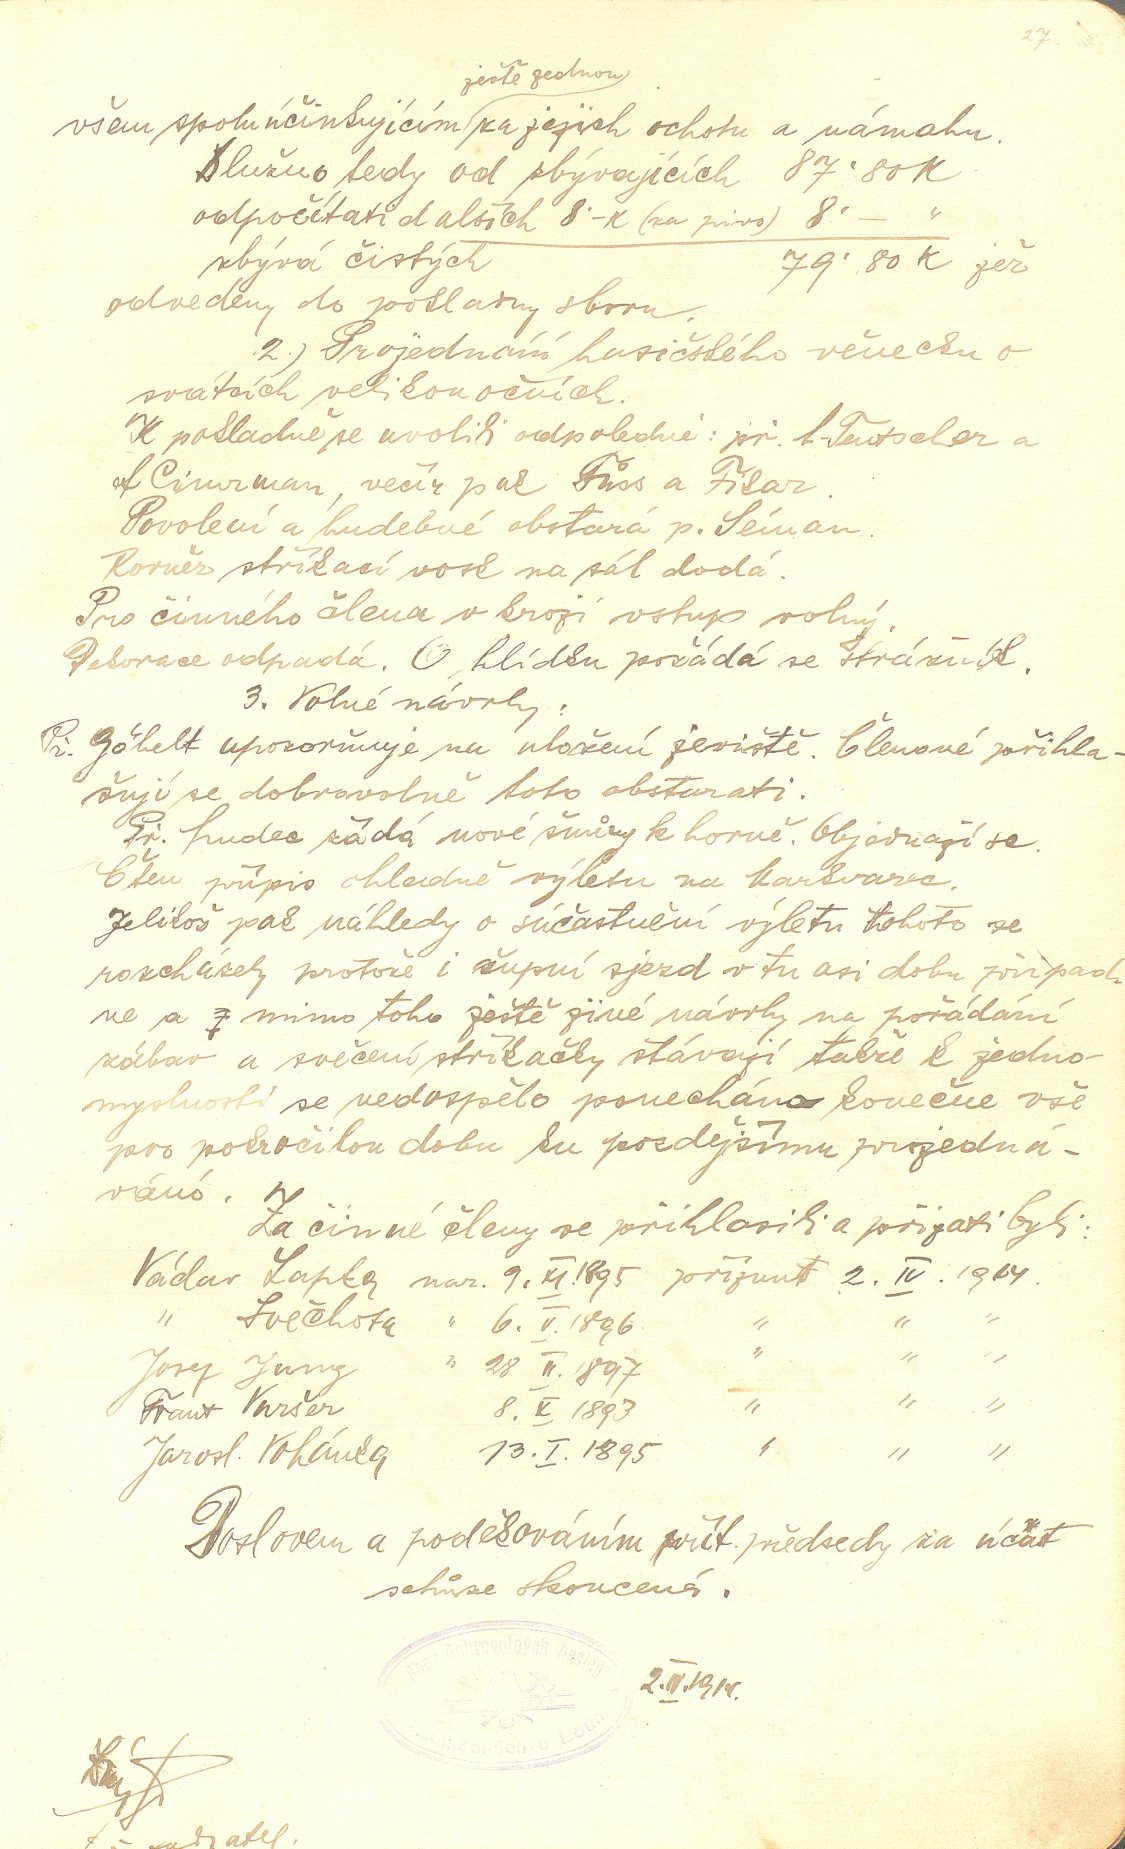 27
ještě jednou
všem spoluúčinkujícím za jejich ochotu a námahu.
Slušno tedy od zbývajících 87·80 K
odpočítati dalších 8·– K (za pivo) 8·— "
zbývá čistých 79·80 K jež
odvedeny do pokladny sboru.
2.) Projednání hasičského věnečku o
svátcích velikonočních.
K pokladně se uvolili odpoledne: př. Teutscher a
Cimrman, večír pak Füss a Fikar.
Povolení a hudebné obstará p. Seiman.
Korněz stříkací vosk na sál dodá.
Pro činného člena v kroji vstup volný.
Dekorace odpadá. O hlídku požádá se strážník.
3. Volné návrhy:
Př. Göbelt upozorňuje na uložení jeviště. Členové přihla-
šují se dobrovolně toto obstarati.
Př. hudec žádá nové šňůry k horně. Objednají se.
Čten přípis ohledně výletu na Karšvarec.
Jelikož pak náhledy o súčastnění výletu tohoto se
rozcházely protože i župní sjezd v tu asi dobu připad-
ne a mimo toho ještě jiné návrhy na pořádání
zábav a svěcení stříkačky stávají takže k jedno-
myslnosti se nedospělo ponecháno konečne vše
pro pokročilou dobu ku pozdějšímu projedná-
vání.
Za činné členy se přihlasili a přijati byli:
Václav Lapka nar. 9. XI. 1895 přijmut 2. IV. 1914.
" Svěchota " 6. V. 1896 " " "
Josef Jung " 28 II. 1897 " " "
Frant Kuršer 8. X 1893 " " "
Jarosl. Vohánka 13. I. 1895 " " "
Doslovem a poděkováním přít. předsedy za účast
schůze skončená.
2. IV. 1914.